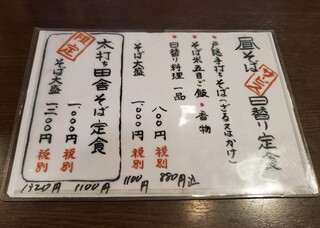 昼そば 日替り定食
・戸隠手打ちそば(ざる又はかけ)
・そば米五目ご飯 ・香物
・日替り料理一品
八〇〇円 税別
880円込
そば大盛 一、〇〇〇円 税別
1100円
限定
太打ち田舎そば定食
一、〇〇〇円 税別
1100円
そば大盛 一、二〇〇円 税別
1320円